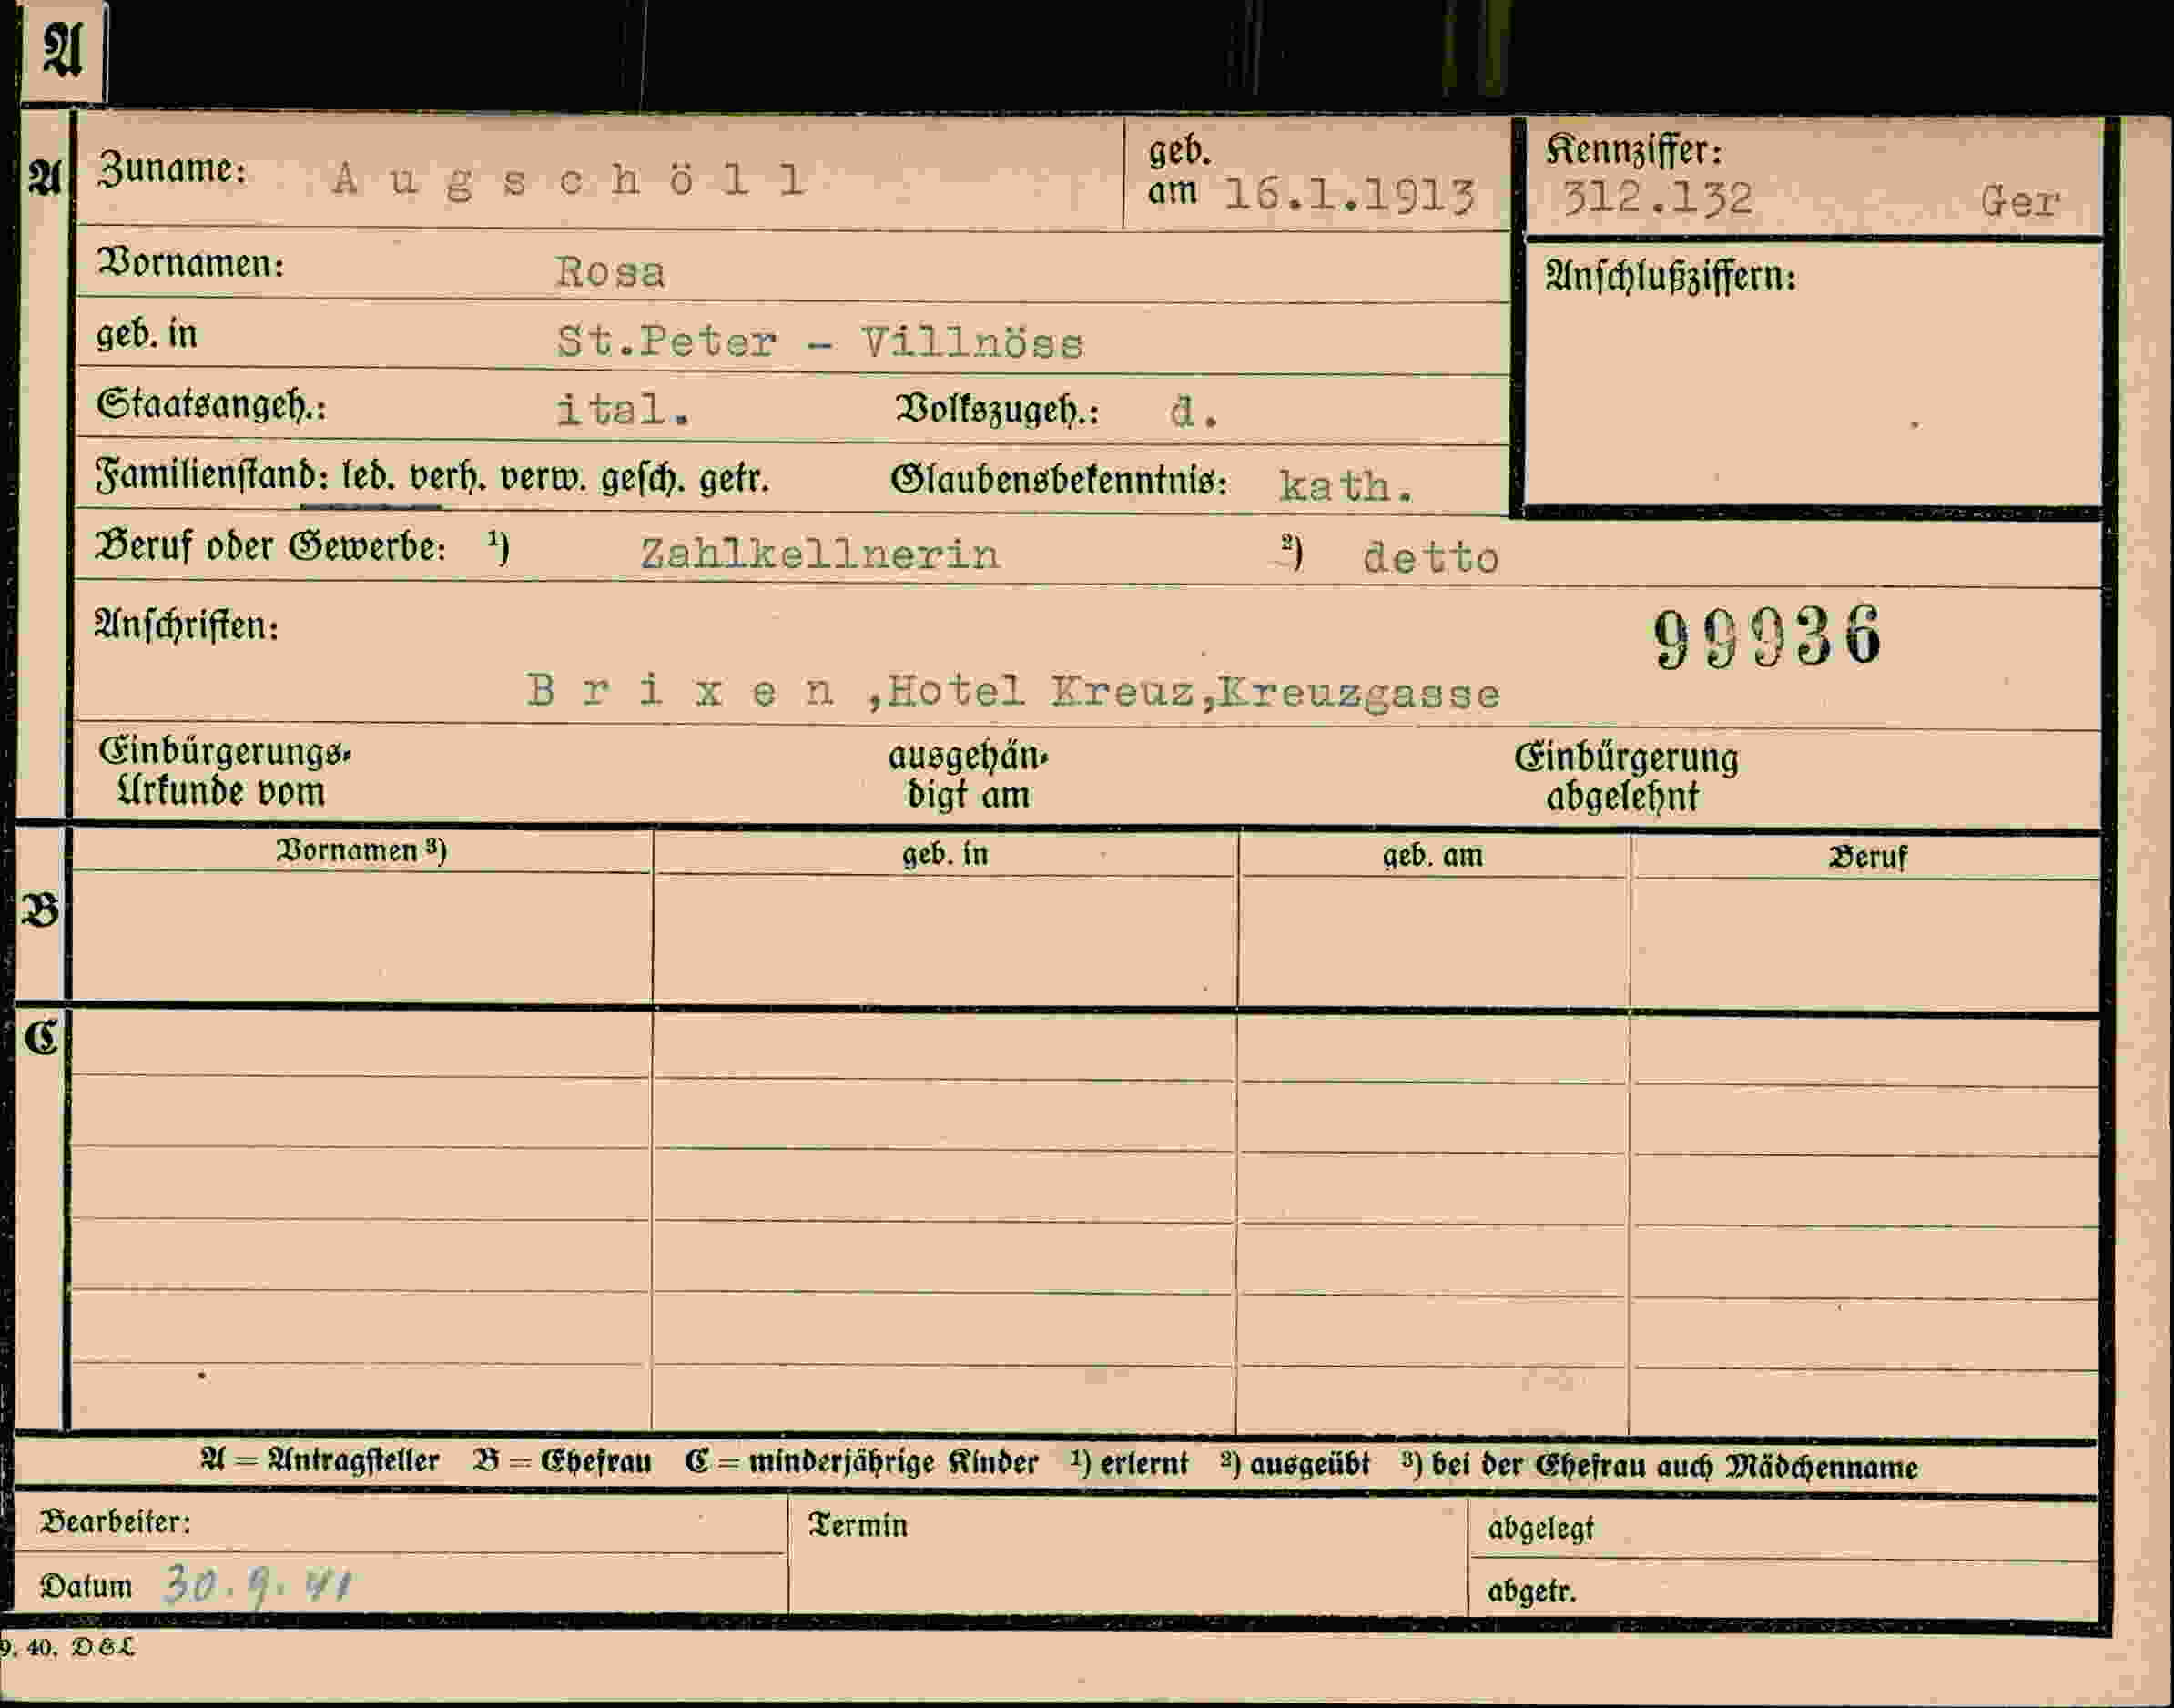 A
A
Zuname: Augschöll
geb. am 16.1.1913
Kennziffer:
312.132 Ger
Vornamen: Rosa
Anschlußziffern:
geb. in St.Peter - Villnöss
Staatsangeh.: ital. Volkszugeh.: d.
Familienstand: led. verh. verw. gesch. getr. Glaubensbekenntnis: kath.
Beruf oder Gewerbe: 1) Zahlkellnerin 2) detto
Anschriften:
99936
Brixen,Hotel Kreuz,Kreuzgasse
Einbürgerungs-
Urkunde vom
ausgehän-
digt am
Einbürgerung
abgelehnt
Vornamen 3) geb. in geb. am Beruf
B
C
A = Antragsteller B = Ehefrau C = minderjährige Kinder 1) erlernt 2) ausgeübt 3) bei der Ehefrau auch Mädchenname
Bearbeiter:
Termin
abgelegt
Datum 30.9.41
abgetr.
9. 40. D&L